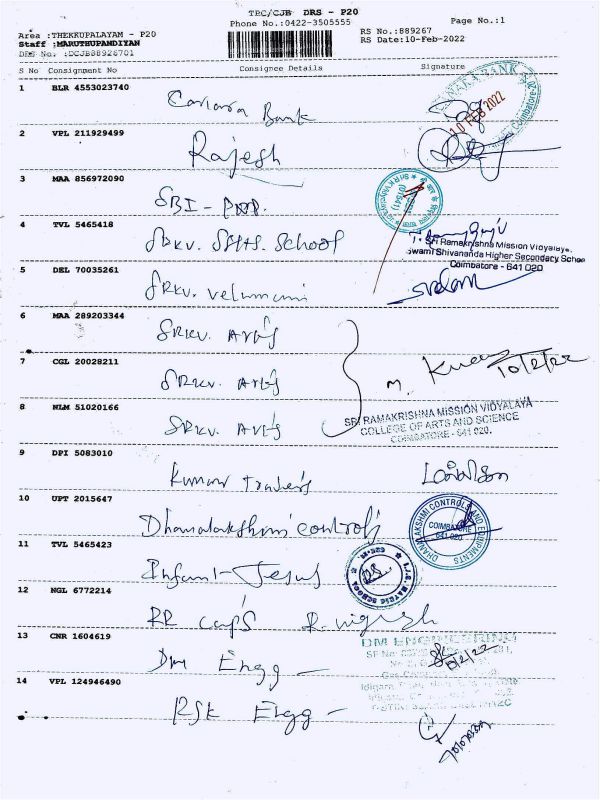 TPC/CJB DRS - P20
Phone No.:0422-3505555
Page No.:1
Area :THEKKUPALAYAM - P20
RS No.:889267
Staff :MARUTHUPANDIYAN
RS Date:10-Feb-2022
DRS No. :DCJB88926701
S No Consignment No Consignee Details Signature
1 BLR 4553023740 Canara Bank
CANARA BANK
10 FEB 2022
Coimbatore-20
2 VPL 211929499 Rajesh
3 MAA 856972090 SBI -
4 TVL 5465418 SRKV. SSHS. School
Sri Ramakrishna Mission Vidyalaya,
Swami Shivananda Higher Secondary School
Coimbatore - 641 020
5 DEL 70035261 SRKV. Velumani
6 MAA 289203344 SRKV. Arts
7 CGL 20028211 SRKV. Arts
M. 10/2/22
8 NLM 51020166 SRKV. Arts
SRI RAMAKRISHNA MISSION VIDYALAYA
COLLEGE OF ARTS AND SCIENCE
COIMBATORE - 641 020.
9 DPI 5083010 Kumar Traders
10 UPT 2015647 Dhanalakshmi Controls
DHANALAKSHMI CONTROLS AND EQUIPMENTS
COIMBATORE
641 020
11 TVL 5465423 Infant Jesus
12 NGL 6772214 RR Caps
13 CNR 1604619 Dm Engg -
DM ENGINEERING
14 VPL 124946490 RSK Engg -